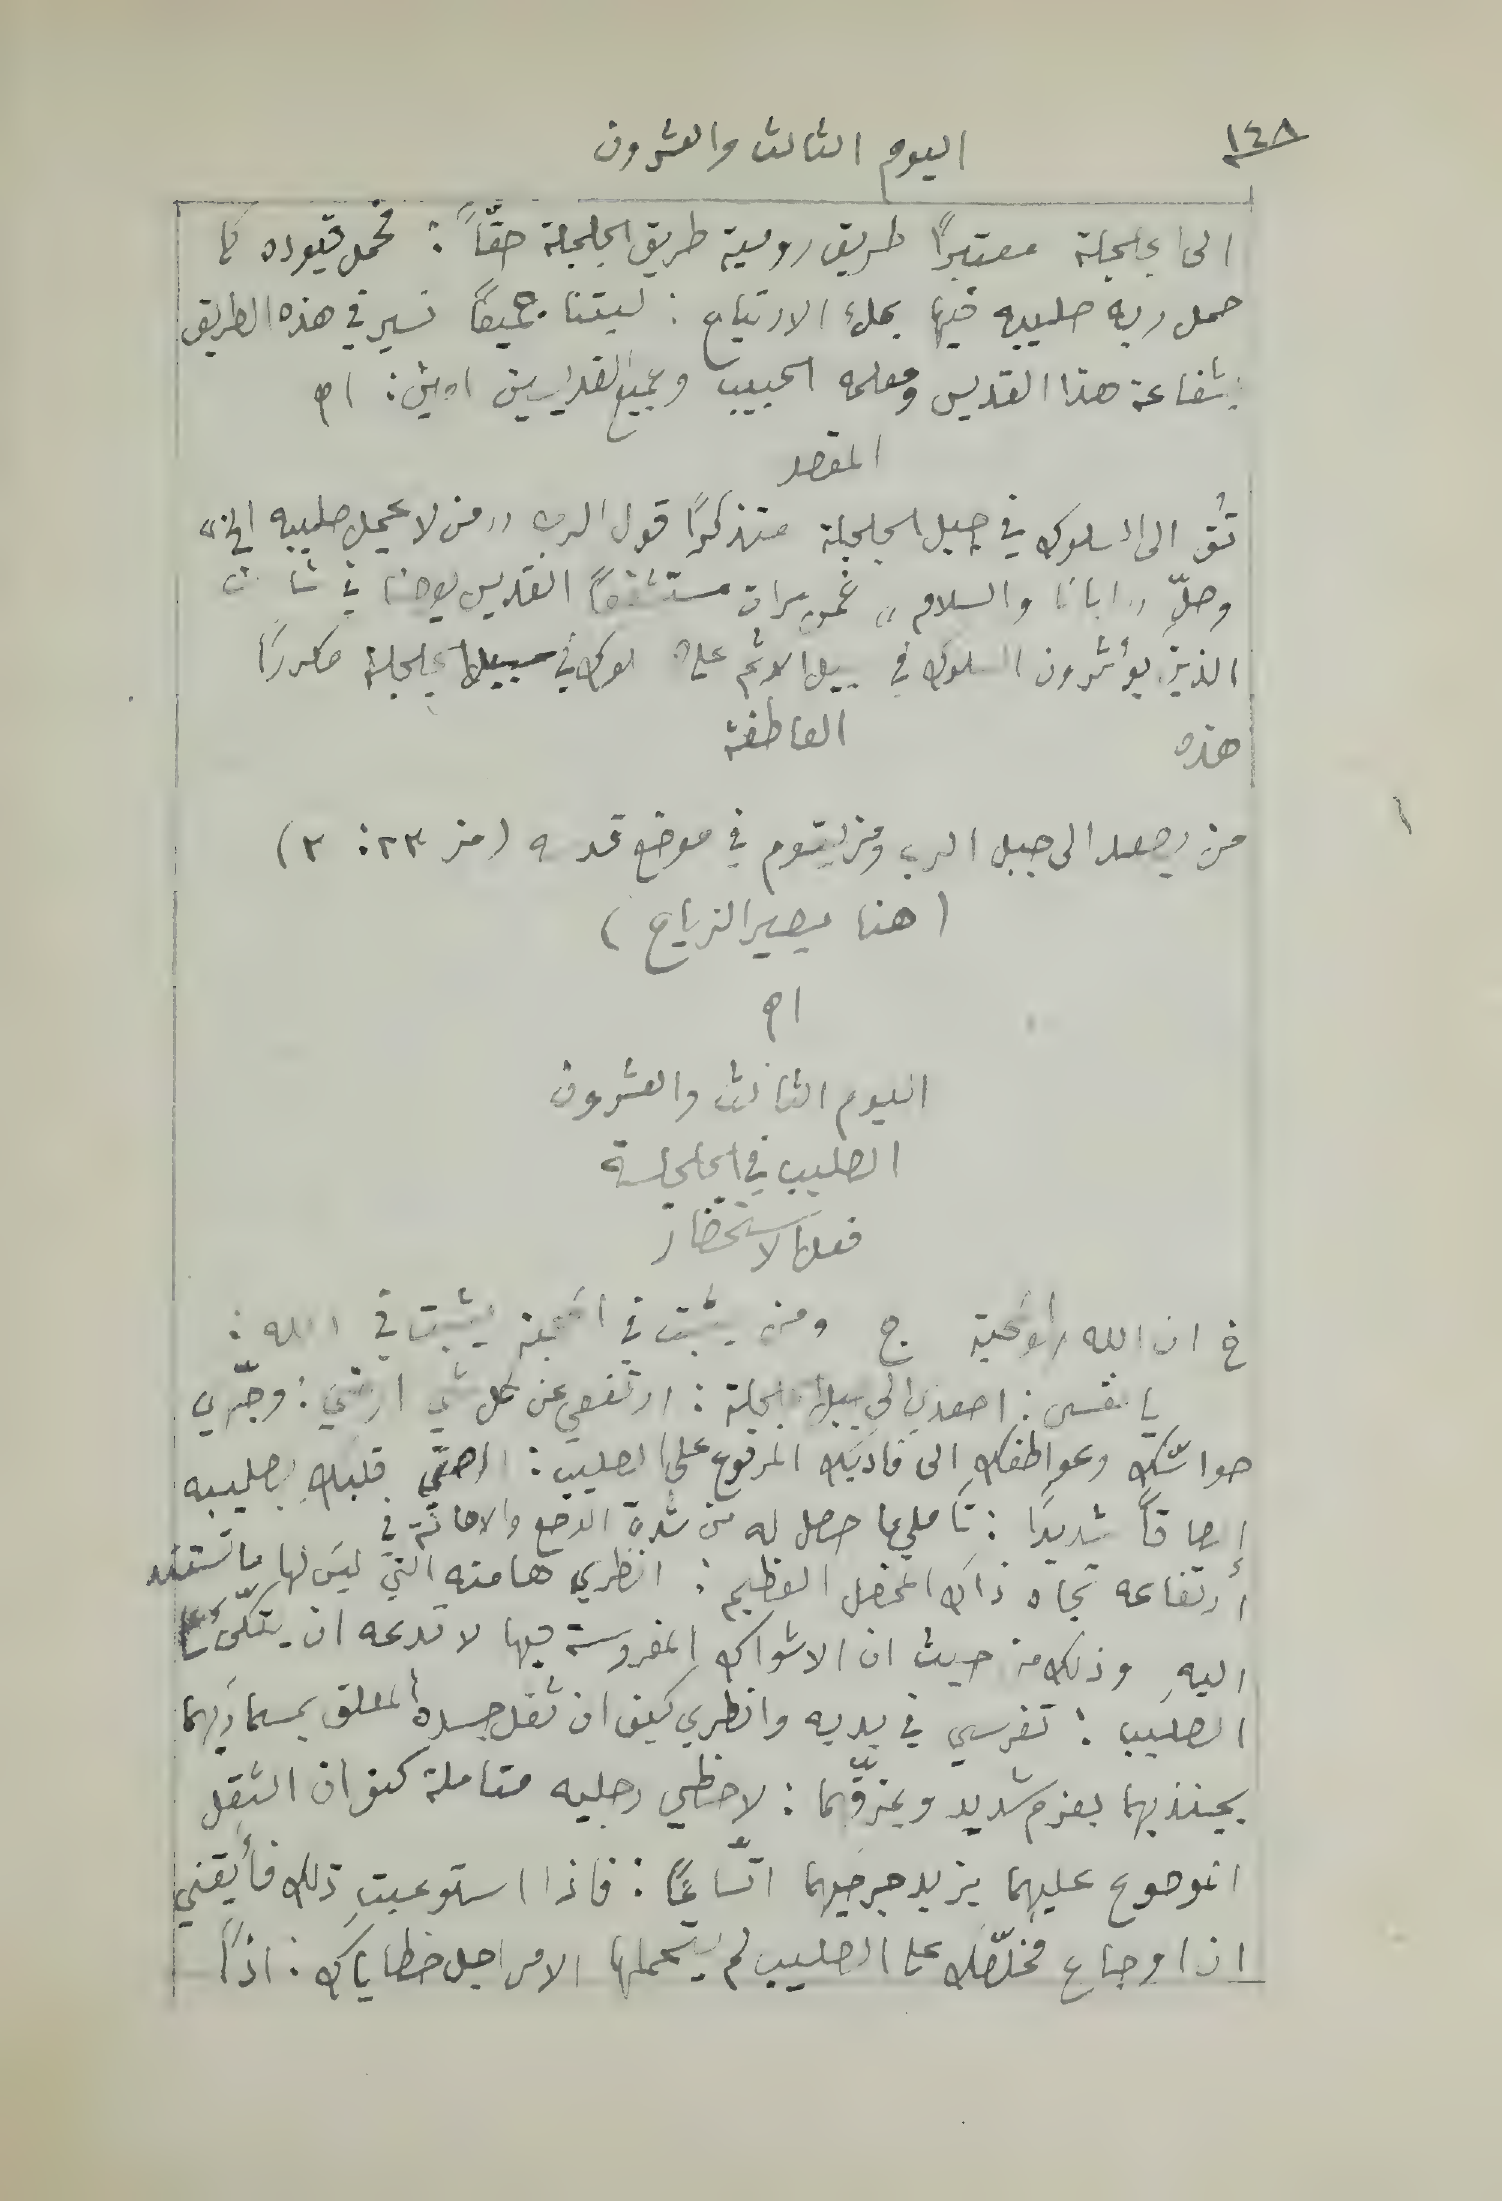 ١٤٨
اليوم الثالث والعشرون
الى الجلجلة معتبرًا طريق رومية طريق الجلجلة حقًّا : فحمل قيوده كما
حمل ربه صليبه فيها بملء الارتياح : ليتنا جميعًا نسير في هذه الطريق
بشفاعة هذا القديس ومعلمه الحبيب وجميع القديسين امين : اه
المقصد
تُق الى السلوك في جبل الجلجلة متذكرًا قول الرب „ من لا يحمل صليبه الخ "
وصلّ „ ابانا والسلام " خمس مرات مستشفعًا القديس يوحنا في شان
الذين يؤثرون السلوك في سبيل الاثم على السلوك في سبيل الجلجلة مكررًا
هذه العاطفة
من يصعد الى جبل الرب ومن يقوم في موضع قدسه ( مز ٢٣ : ٣ )
( هنا يصير الزياح )
اه
اليوم الثالث والعشرون
الصليب في الجلجلة
فعل الاستحضار
خ ان الله المحبة ج ومن يثبت في المحبة يثبت في الله :
يا نفسي : اصعدي الى جبل الجلجلة : ارتفعي عن كل شي ارضي : وجّري
حواسّكِ وعواطفكِ الى فاديكِ المرفوع على الصليب : الصقي قلبكِ بصليبه
إلصاقًا شديدًا : تأملي بما حصل له من شدة الوجع والاهانة في
أرتفاعه تجاه ذاك المحفل العظيم : انظري هامته التي ليس لها ما تستند
اليهِ وذلك من حيث ان الاشواك المغروسة فيها لا تدعه ان يتكّئ على
الصليب : تفرسي في يديه وانظري كيف ان ثقل جسده المعلق بمسمارَيهما
يجتذبهما بعزم شديد ويمزّقهما : لاحظي رجليه متاملة كيف ان الثقل
الموضوع عليهما يزيد جرحَيهما اتّساعًا : فاذا استوعبتِ ذلك فأيقني
ان اوجاع مخلّصكِ على الصليب لم يتحملها الا من اجل خطاياكِ : اذًا